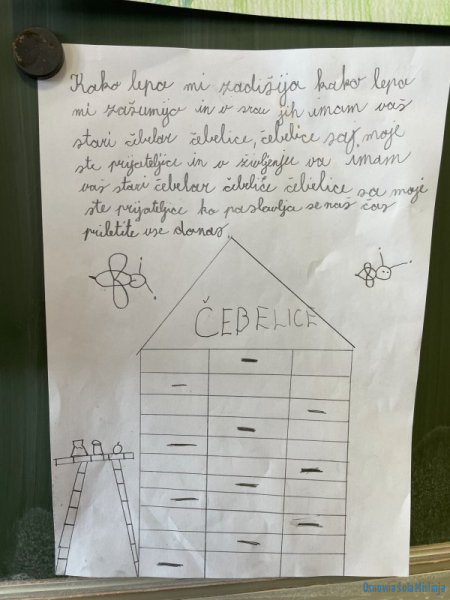 Kako lepa mi zadišija kako lepa
mi zašumija in v srcu jih imam vaš
stari čebelar čebelice, čebelice saj moje
ste prijateljice in v življenjee va imam
vaš stari čebelar čebelice čebelice sa moje
ste prijateljice ko paslavlja se naš čas
priletite vse danas.
ČEBELICE